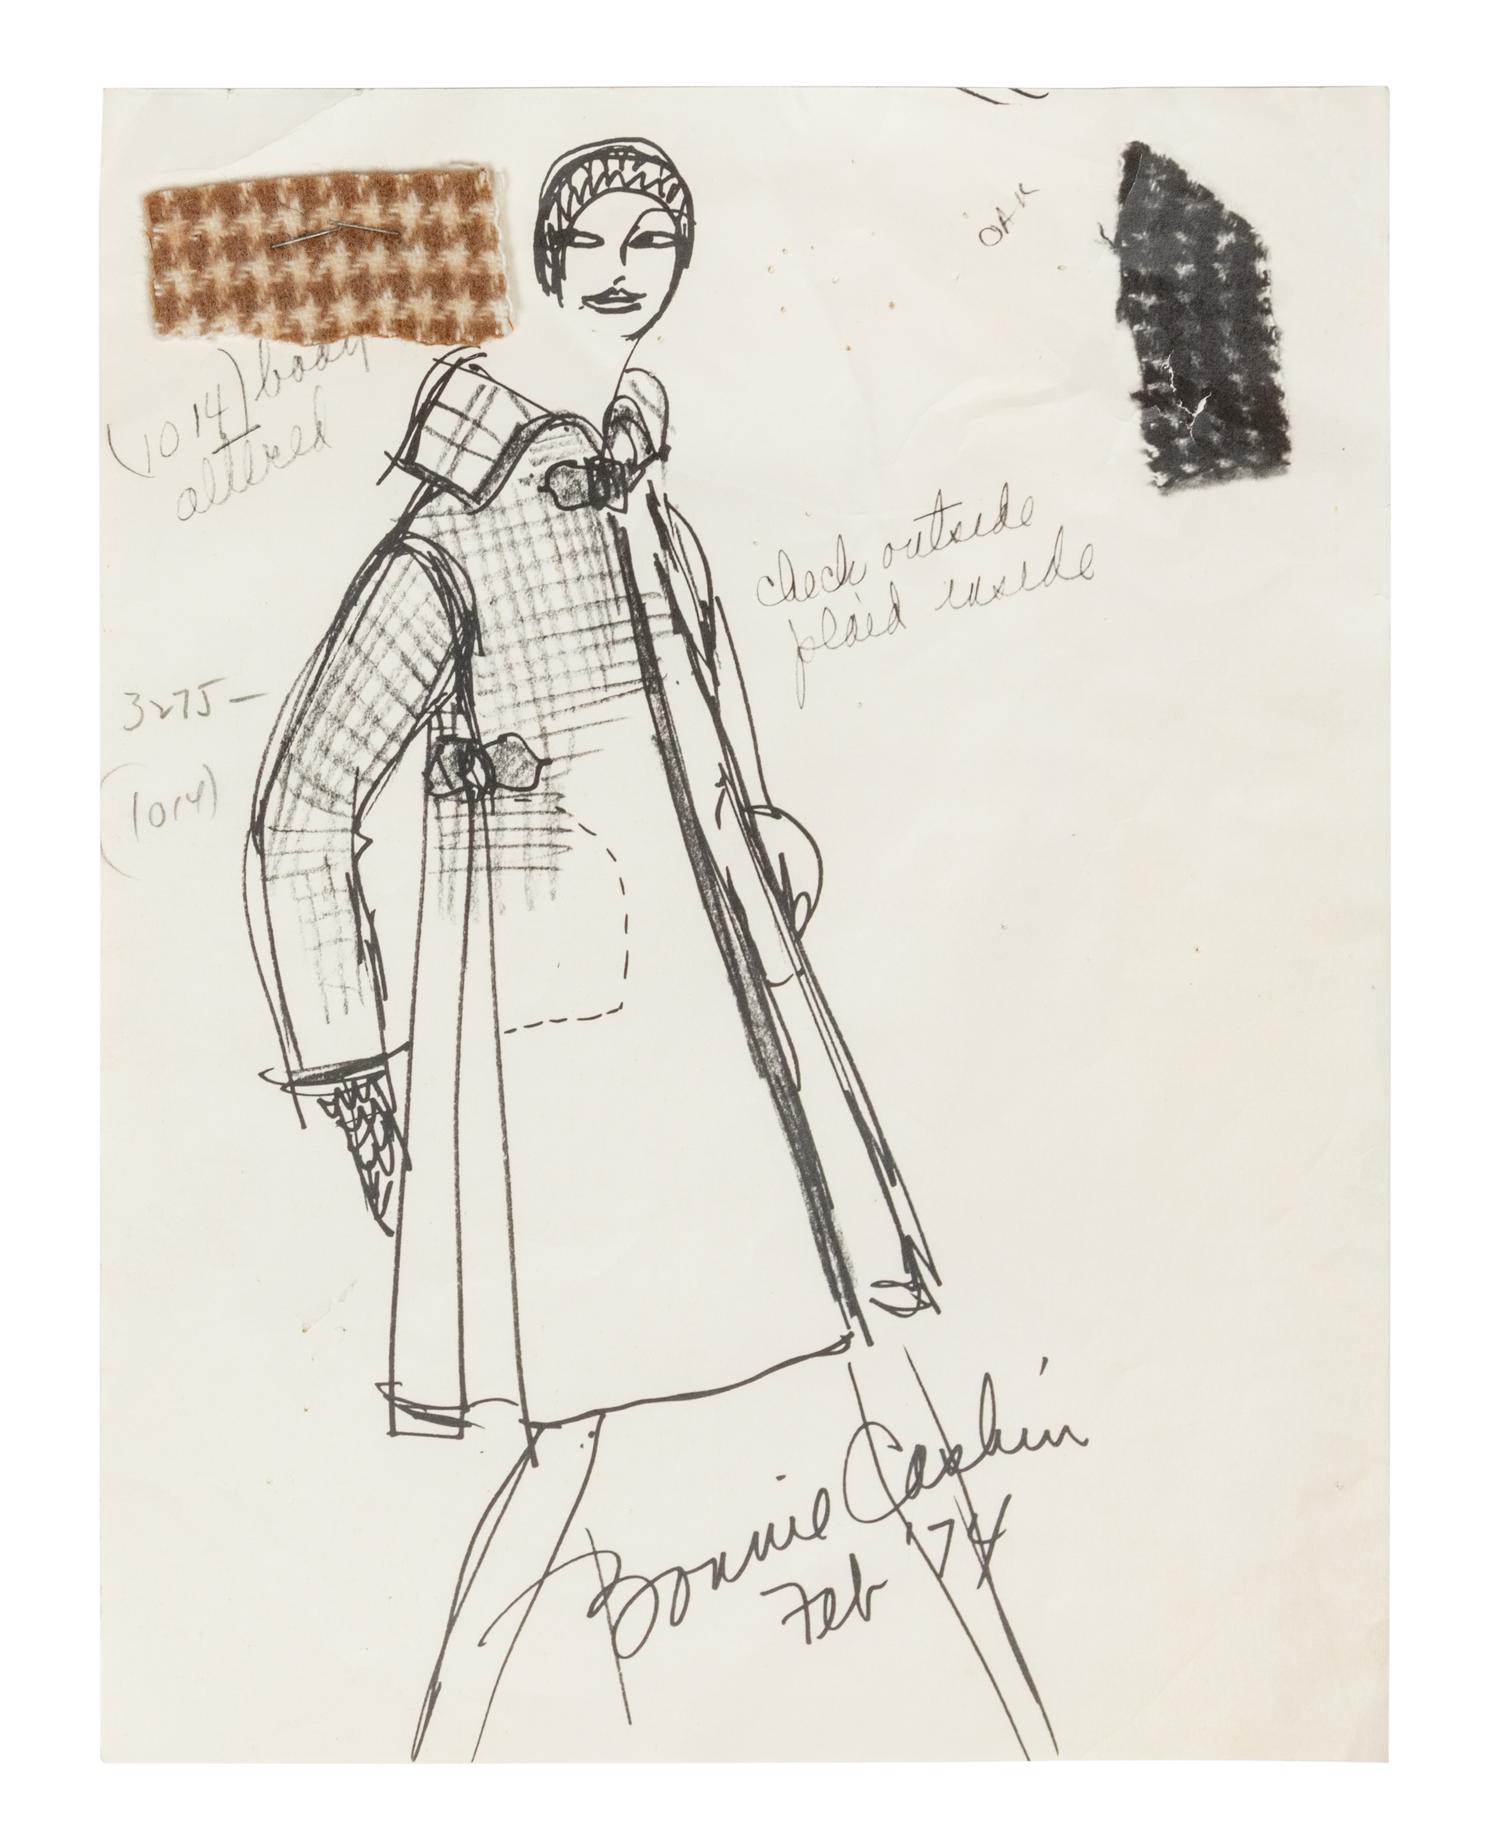 OAK
(1014) body
altered
check outside
plaid inside
3275-
(1014)
Bonnie Cashin
Feb '74